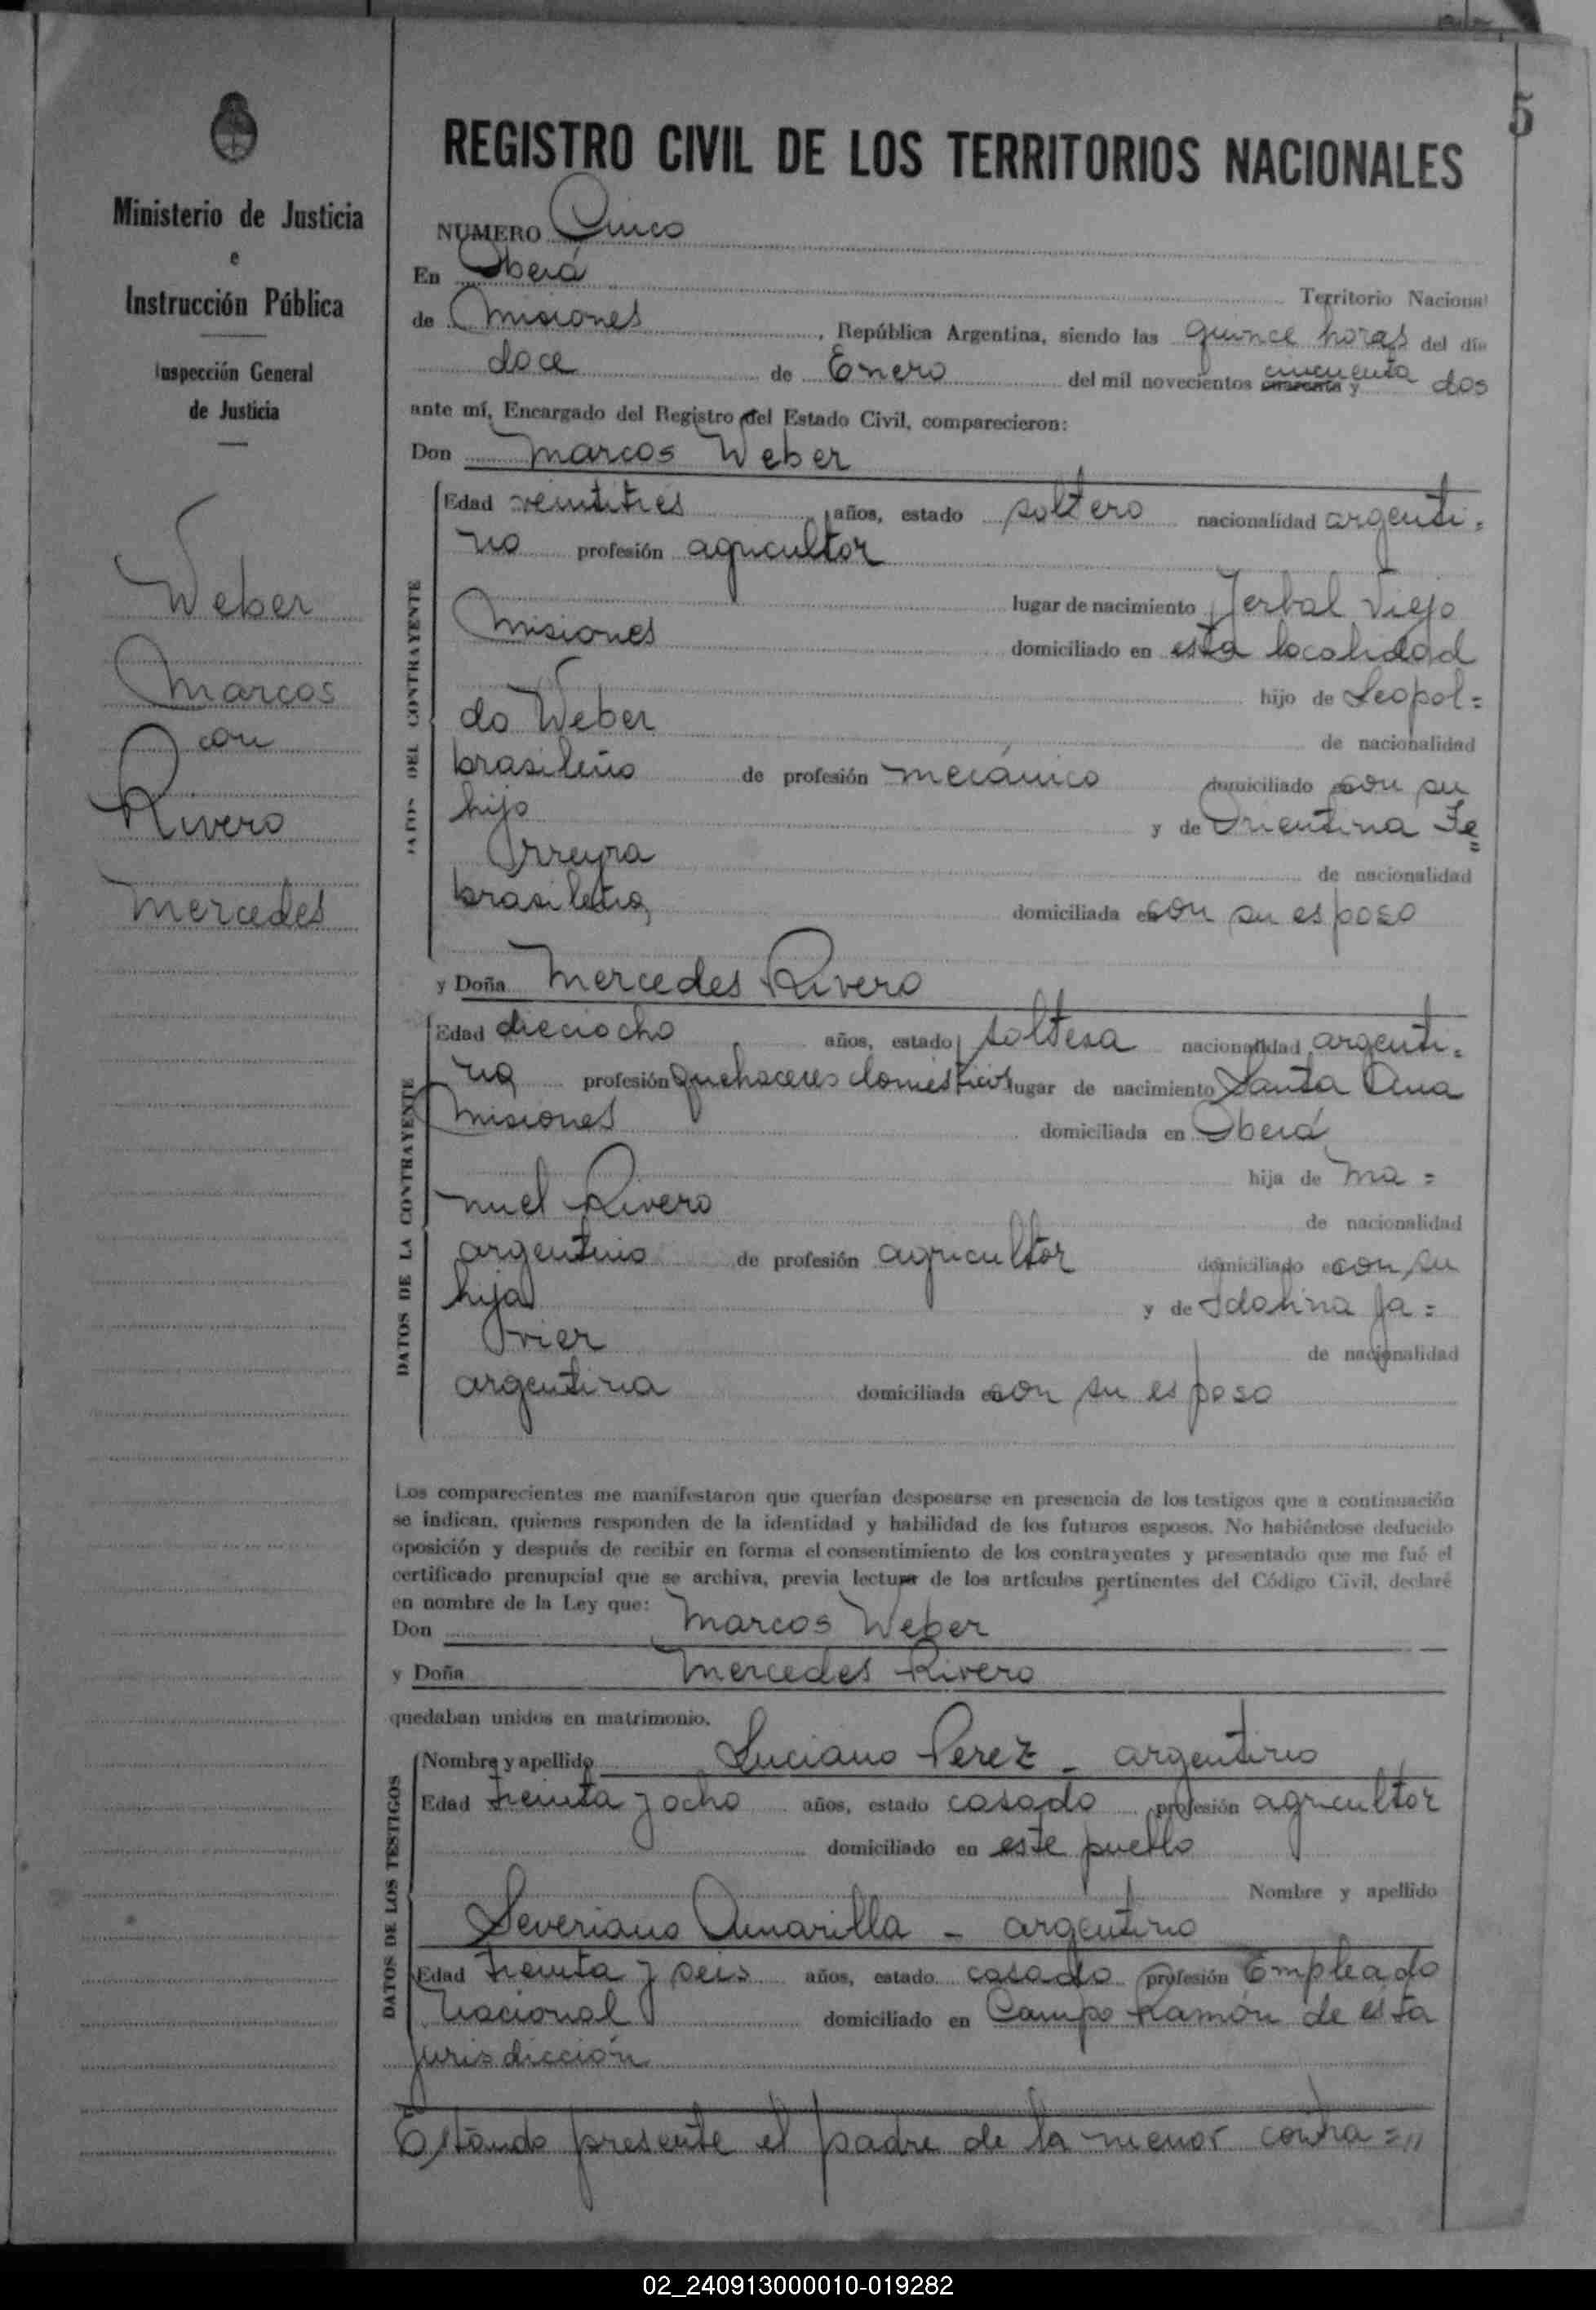 5
Ministerio de Justicia
e
Instrucción Pública
Inspección General
de Justicia
Weber
Marcos
con
Rivero
Mercedes
REGISTRO CIVIL DE LOS TERRITORIOS NACIONALES
NUMERO Cinco
En Oberá Territorio Nacional
de Misiones, República Argentina, siendo las quince horas del día
doce de Enero del mil novecientos cuarenta y cincuenta dos
ante mí, Encargado del Registro del Estado Civil, comparecieron:
Don Marcos Weber
DATOS DEL CONTRAYENTE
Edad veintitres años, estado soltero nacionalidad argenti=
no profesión agricultor
lugar de nacimiento Yerbal Viejo
Misiones domiciliado en esta localidad
hijo de Leopol=
do Weber de nacionalidad
brasileño de profesión mecánico domiciliado con su
hijo y de Orientina Fe=
rreyra de nacionalidad
brasileña, domiciliada en con su esposo
y Doña Mercedes Rivero
DATOS DE LA CONTRAYENTE
Edad dieciocho años, estado soltera nacionalidad argenti=
na profesión quehaceres domésticos lugar de nacimiento Santa Ana
Misiones domiciliada en Oberá
hija de Ma=
nuel Rivero de nacionalidad
argentino de profesión agricultor domiciliado en con su
hija y de Idalina Ja=
vier de nacionalidad
argentina domiciliada en con su esposo
Los comparecientes me manifestaron que querían desposarse en presencia de los testigos que a continuación
se indican, quienes responden de la identidad y habilidad de los futuros esposos. No habiéndose deducido
oposición y después de recibir en forma el consentimiento de los contrayentes y presentado que me fué el
certificado prenupcial que se archiva, previa lectura de los artículos pertinentes del Código Civil, declaré
en nombre de la Ley que:
Don Marcos Weber
y Doña Mercedes Rivero
quedaban unidos en matrimonio.
DATOS DE LOS TESTIGOS
Nombre y apellido Luciano Perez - argentino
Edad treinta y ocho años, estado casado profesión agricultor
domiciliado en este pueblo
Nombre y apellido
Severiano Amarilla - argentino
Edad treinta y seis años, estado casado profesión Empleado
Nacional domiciliado en Campo Ramón de esta
jurisdicción
Estando presente el padre de la menor contra=//
02_240913000010-019282